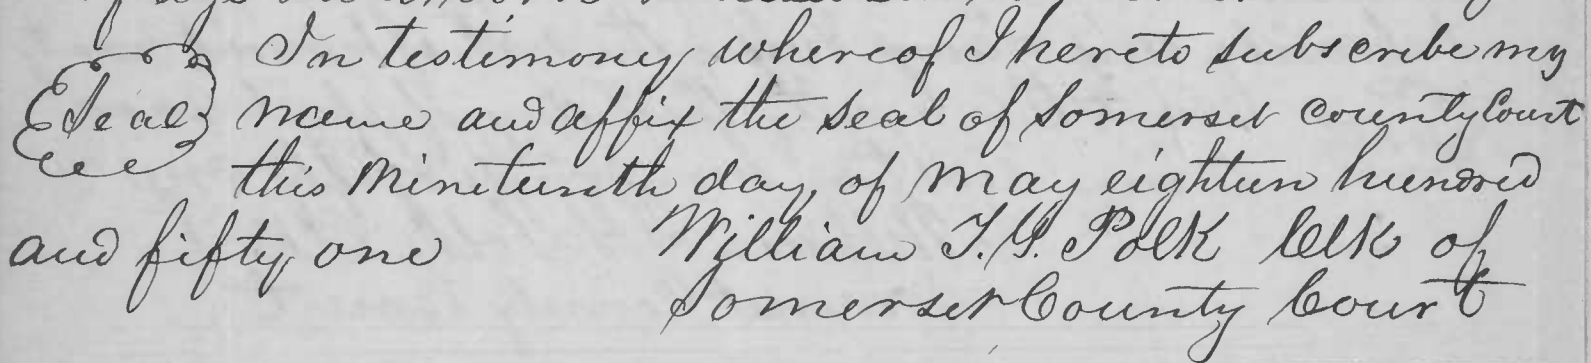 In testimony whereof I hereto subscribe my
Seal name and affix the seal of Somerset County Court
this Nineteenth day, of May eighteen hundred
and fifty one William T. G. Polk Clk of
Somerset County Court